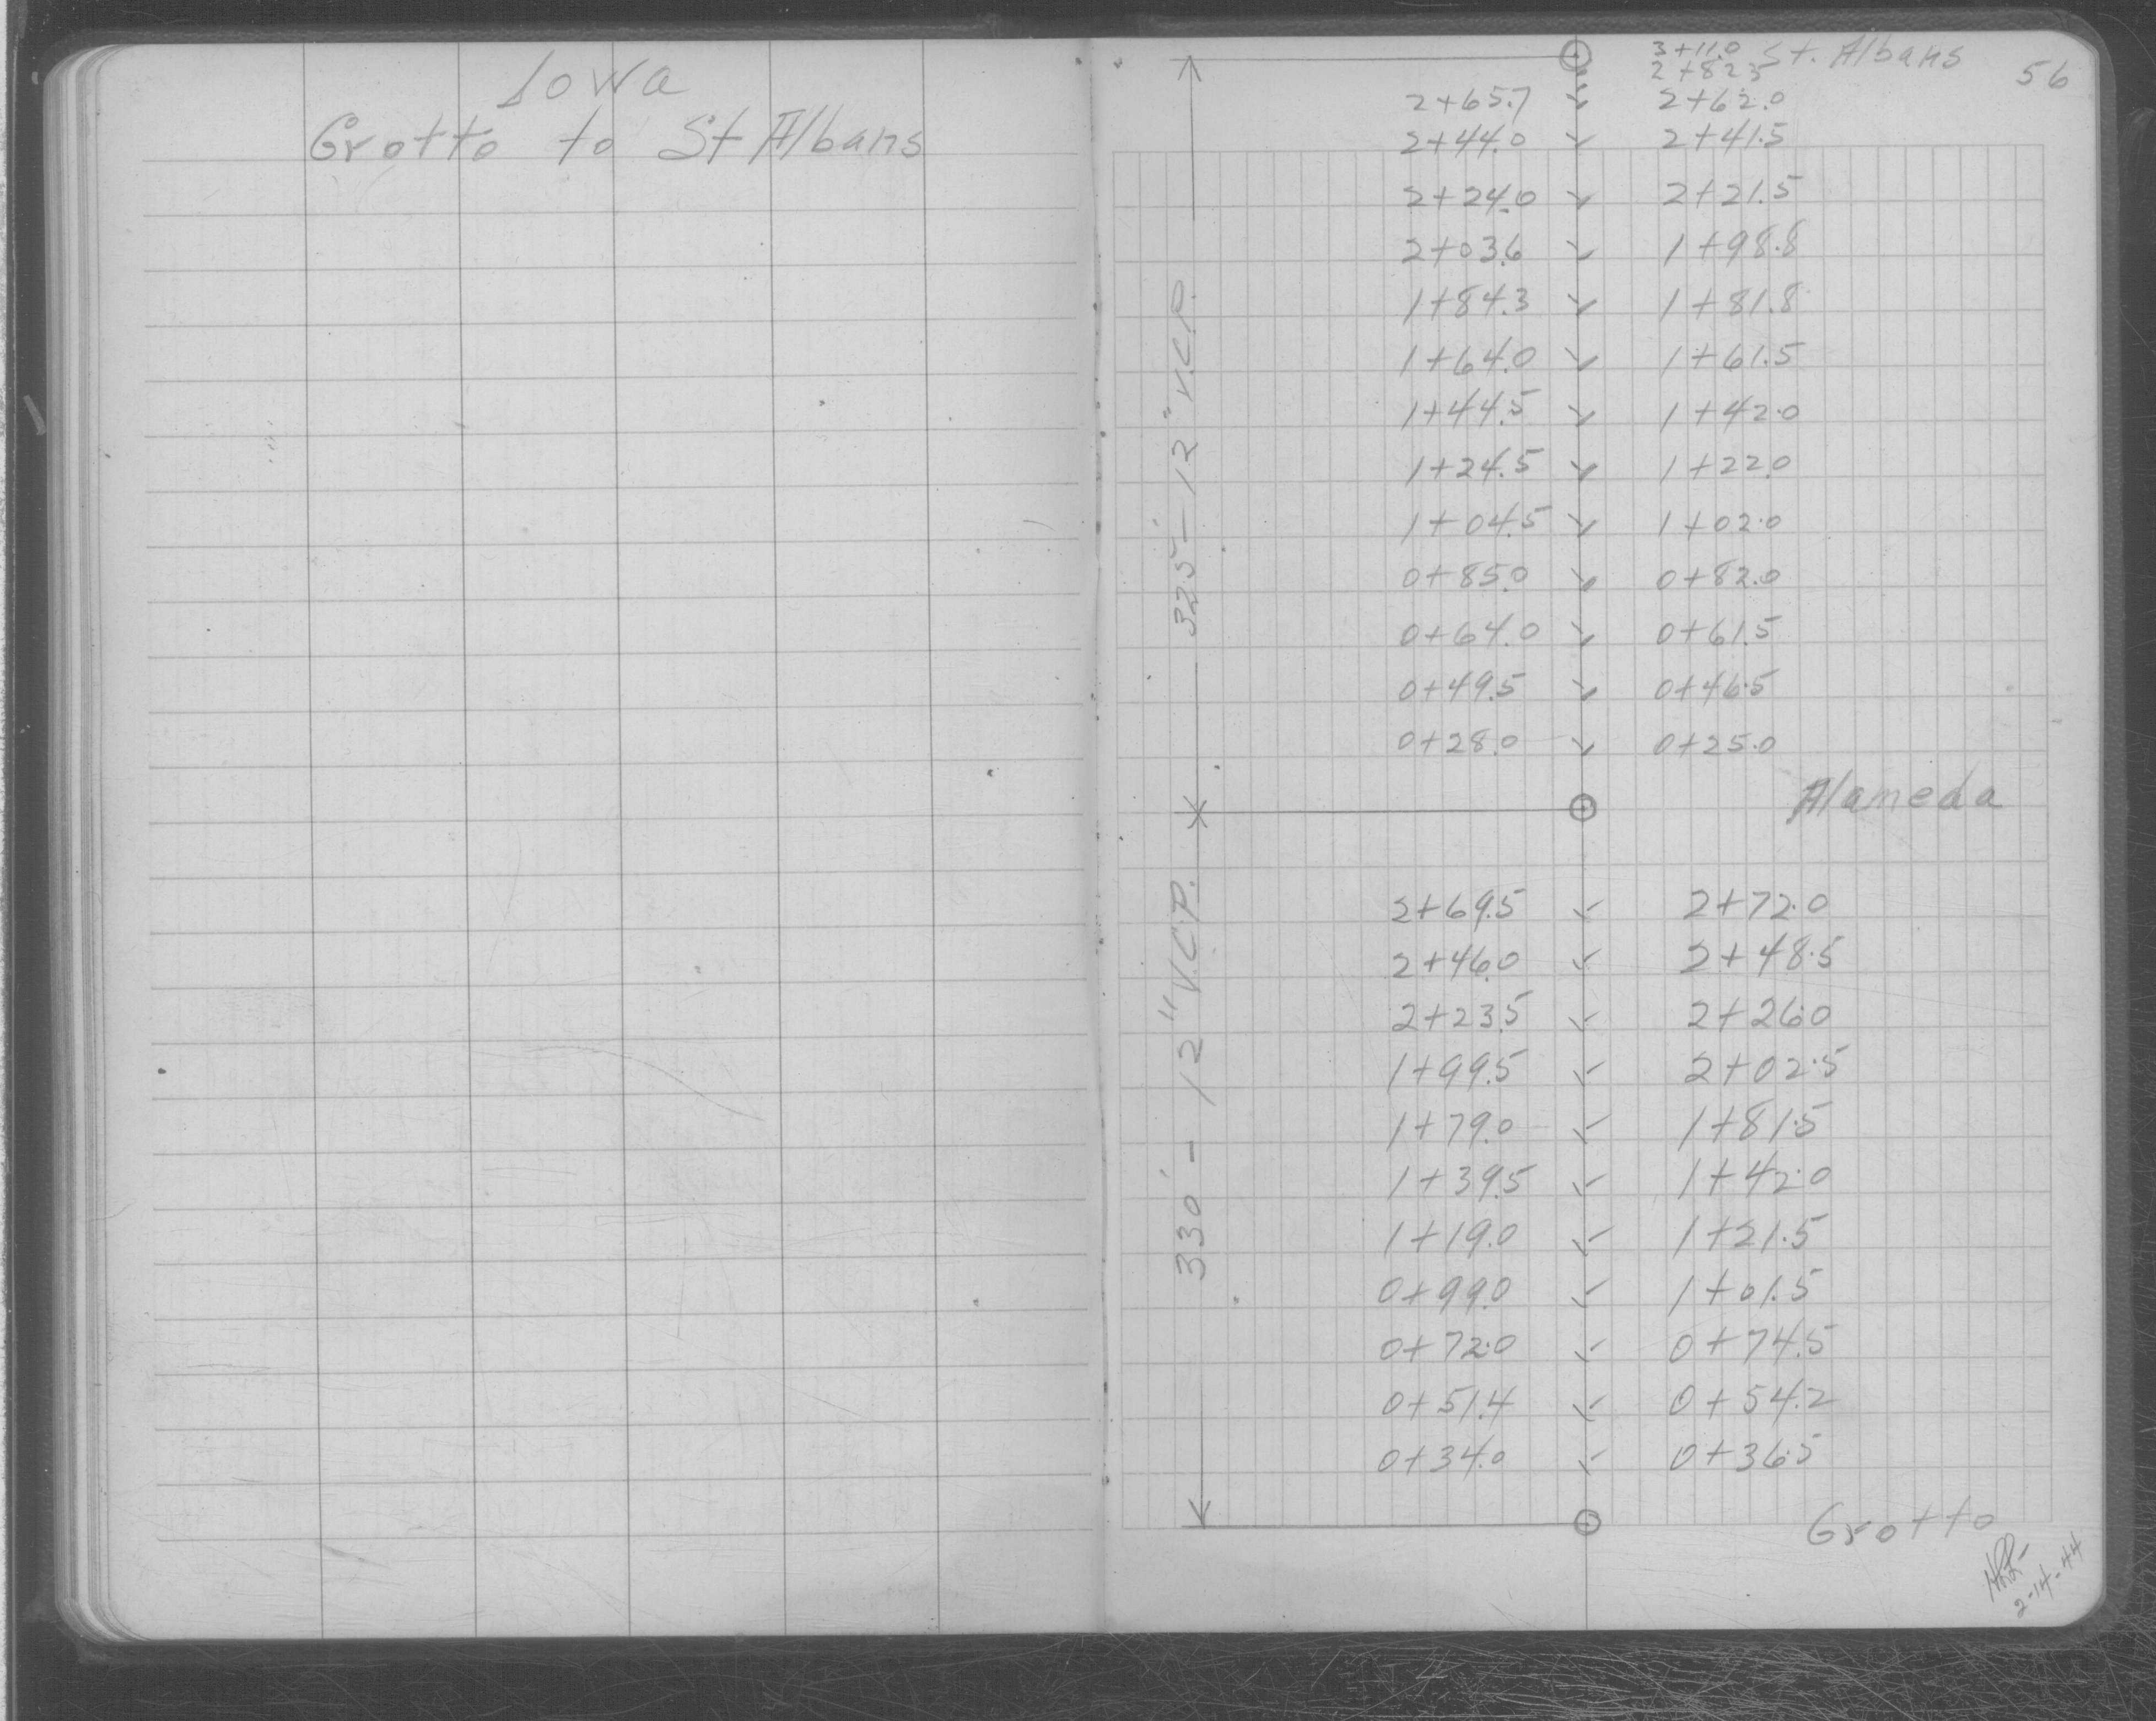 Iowa
Grotto to St Albans
56
3+11.0 St. Albans
2+82.5
2+65.7 2+62.0
2+44.0 2+41.5
2+24.0 2+21.5
2+03.6 1+98.8
1+84.3 1+81.8
1+64.0 1+61.5
1+44.5 1+42.0
1+24.5 1+22.0
1+04.5 1+02.0
0+85.0 0+82.0
0+64.0 0+61.5
0+49.5 0+46.5
0+28.0 0+25.0
325'-12" V.C.P.
Alameda
2+69.5 2+72.0
2+46.0 2+48.5
2+23.5 2+26.0
1+99.5 2+02.5
1+79.0 1+81.5
1+39.5 1+42.0
1+19.0 1+21.5
0+99.0 1+01.5
0+72.0 0+74.5
0+51.4 0+54.2
0+34.0 0+36.5
330'- 12" V.C.P.
Grotto
2-14-44